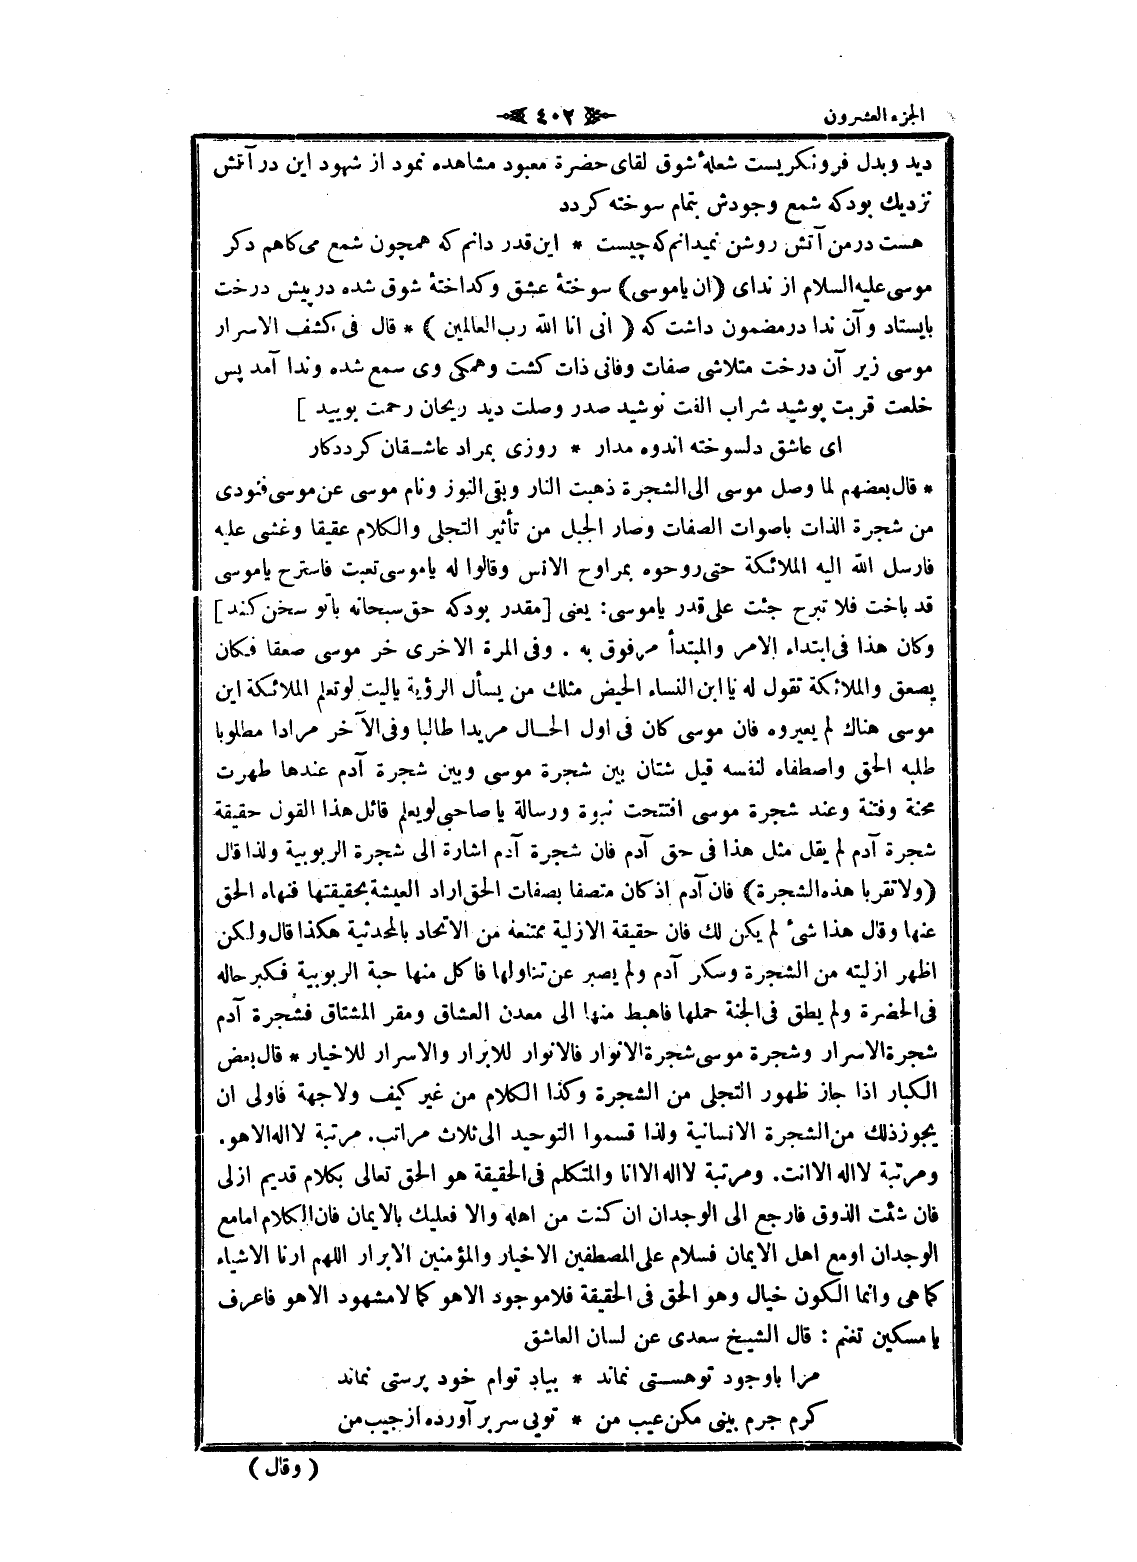 الجزء العشرون
٤٠٢
ديد وبدل فرونكريست شعلهٔ شوق لقاى حضرة معبود مشاهده نمود از شهود اين در آتش
نزديك بودكه شمع وجودش بتمام سوخته كردد
هست درمن آتش روشن نميدانم كه چيست * اين قدر دانم كه همچون شمع مى كاهم دكر
موسى عليه السلام از نداى (ان ياموسى) سوختهٔ عشق وكداختهٔ شوق شده در پيش درخت
بايستاد وآن ندا درمضمون داشت كه ( انى انا الله رب العالمين ) * قال فى كشف الاسرار
موسى زير آن درخت متلاشى صفات وفانى ذات كشت وهمكى وى سمع شده وندا آمد پس
خلعت قربت پوشيد شراب الفت نوشيد صدر وصلت ديد ريحان رحمت بوييد ]
اى عاشق دلسوخته اندوه مدار * روزى بمراد عاشقان كرددكار
* قال بعضهم لما وصل موسى الى الشجرة ذهبت النار وبقى النوز ونام موسى عن موسى فنودى
من شجرة الذات باصوات الصفات وصار الجبل من تأثير التجلى والكلام عقيقا وغشى عليه
فارسل الله اليه الملائكة حتى روحوه بمراوح الانس وقالوا له ياموسى تعبت فاسترح ياموسى
قد باخت فلا تبرح جئت على قدر ياموسى: يعنى [مقدر بودكه حق سبحانه باتو سخن كند]
وكان هذا فى ابتداء الامر والمبتدأ مرفوق به . وفى المرة الاخرى خر موسى صعقا فكان
يصعق والملائكة تقول له يا ابن النساء الحيض مثلك من يسأل الرؤية ياليت لوتعلم الملائكة اين
موسى هناك لم يعيروه فان موسى كان فى اول الحال مريدا طالبا وفى الآخر مرادا مطلوبا
طلبه الحق واصطفاه لنفسه قيل شتان بين شجرة موسى وبين شجرة آدم عندها ظهرت
محنة وفتنة وعند شجرة موسى افتتحت نبوة ورسالة ياصاحبى لويعلم قائل هذا القول حقيقة
شجرة آدم لم يقل مثل هذا فى حق آدم فان شجرة آدم اشارة الى شجرة الربوبية ولذا قال
(ولاتقربا هذه الشجرة) فان آدم اذكان متصفا بصفات الحق اراد العيشة بحقيقتها فنهاه الحق
عنها وقال هذا شئ لم يكن لك فان حقيقة الازلية ممتنعة من الاتحاد بالمحدثية هكذا قال ولكن
اظهر ازليته من الشجرة وسكر آدم ولم يصبر عن تناولها فاكل منها حبة الربوبية فكبر حاله
فى الحضرة ولم يطق فى الجنة حملها فاهبط منها الى معدن العشاق ومقر المشتاق فشجرة آدم
شجرة الاسرار وشجرة موسى شجرة الانوار فالانوار للابرار والاسرار للاخيار * قال بعض
الكبار اذا جاز ظهور التجلى من الشجرة وكذا الكلام من غير كيف ولاجهة فاولى ان
يجوز ذلك من الشجرة الانسانية ولذا قسموا التوحيد الى ثلاث مراتب. مرتبة لااله الاهو.
ومرتبة لااله الاانت. ومرتبة لااله الاانا والمتكلم فى الحقيقة هو الحق تعالى بكلام قديم ازلى
فان شئت الذوق فارجع الى الوجدان ان كنت من اهله والا فعليك بالايمان فان الكلام امامع
الوجدان اومع اهل الايمان فسلام على المصطفين الاخيار والمؤمنين الابرار اللهم ارنا الاشياء
كماهى وانما الكون خيال وهو الحق فى الحقيقة فلاموجود الاهو كما لامشهود الاهو فاعرف
يامسكين تغنم : قال الشيخ سعدى عن لسان العاشق
مرا باوجود تو هستى نماند * بياد توام خود پرستى نماند
كرم جرم بينى مكن عيب من * تويى سر بر آورده از جيب من
( وقال )